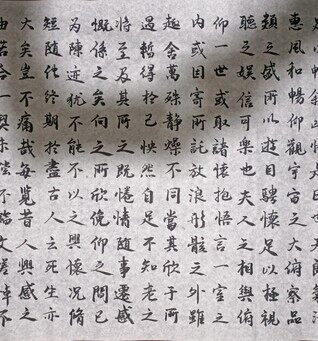 惠風和暢仰觀宇宙之大俯察品
類之盛所以遊目騁懷足以極視
聽之娛信可樂也夫人之相與俯
仰一世或取諸懷抱悟言一室之
內或因寄所託放浪形骸之外雖
趣舍萬殊静躁不同當其欣於所
遇暫得於己快然自足不知老之
將至及其所之既惓情隨事遷感
慨係之矣向之所欣俛仰之間已
為陳迹猶不能不以之興懷況脩
短隨化終期於盡古人云死生亦
大矣豈不痛哉每覽昔人興感之
由若合一契未嘗不臨文嗟悼不